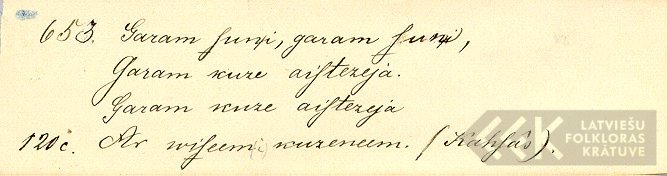 653. Garam suņi, garam suņi,
Garam kuze aistezeja.
Garam kuze aistezeja
120c. Ar wiseem kuzeneem. (Kahsās).
LATVIEŠU
FOLKLORAS
KRĀTUVE